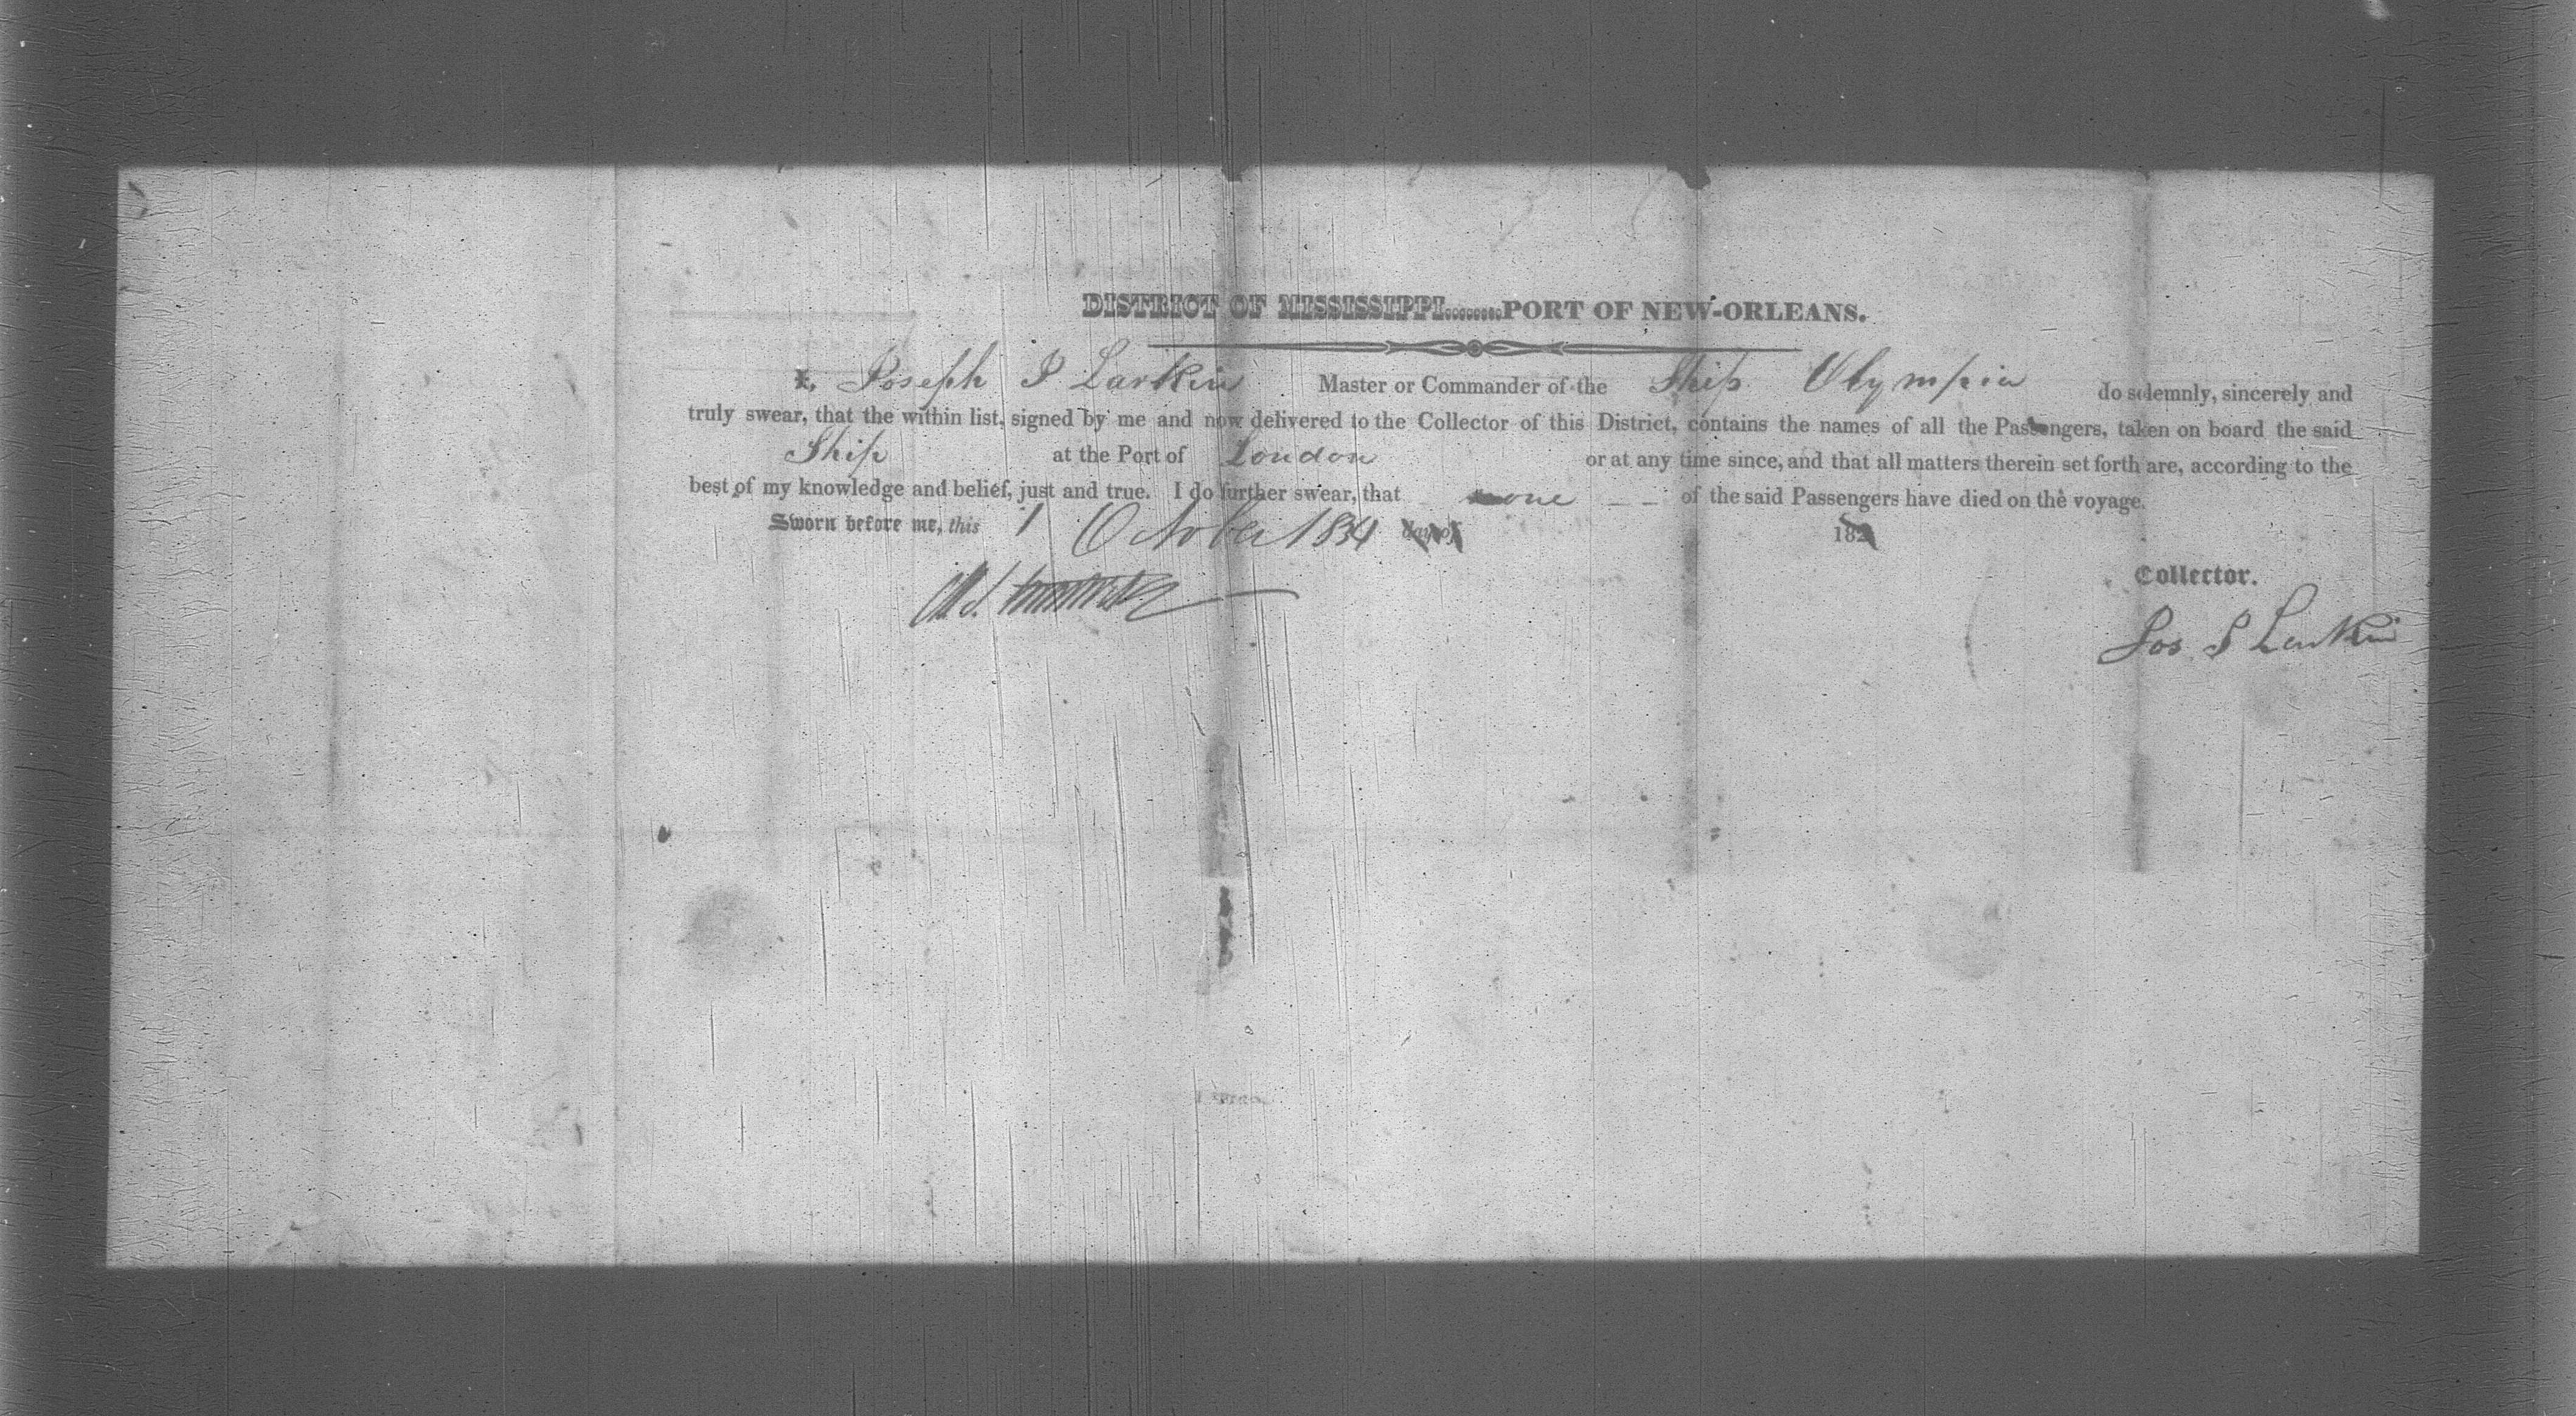 DISTRICT OF MISSISSIPPI.........PORT OF NEW-ORLEANS.
I, Joseph J Larkin Master or Commander of the Ship Olympia do solemnly, sincerely and
truly swear, that the within list, signed by me and now delivered to the Collector of this District, contains the names of all the Passengers, taken on board the said
Ship at the Port of London or at any time since, and that all matters therein set forth are, according to the
best of my knowledge and belief, just and true. I do further swear, that none of the said Passengers have died on the voyage.
Sworn before me, this 1 October 1834 day of 182
Collector.
Jos J Larkin